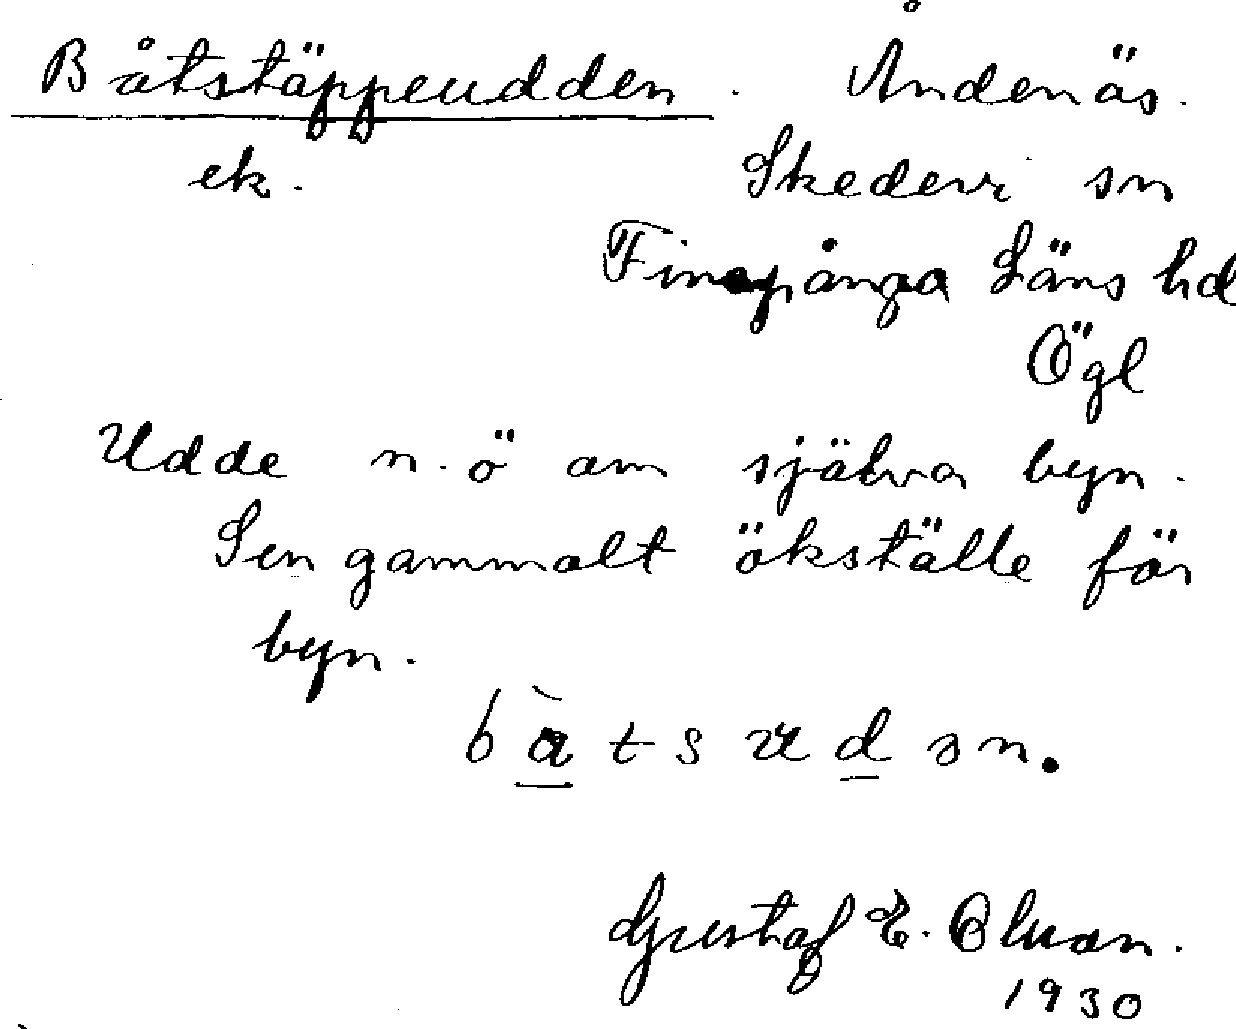 Båtstäppeudden. Åndenäs.
ek. Skedevi sn
Finspånga Läns hd
Ögl
Udde n.ö om själva byn.
Sen gammalt ökställe för
byn.
båtsudsn.
Gustaf E. Olsson.
1930